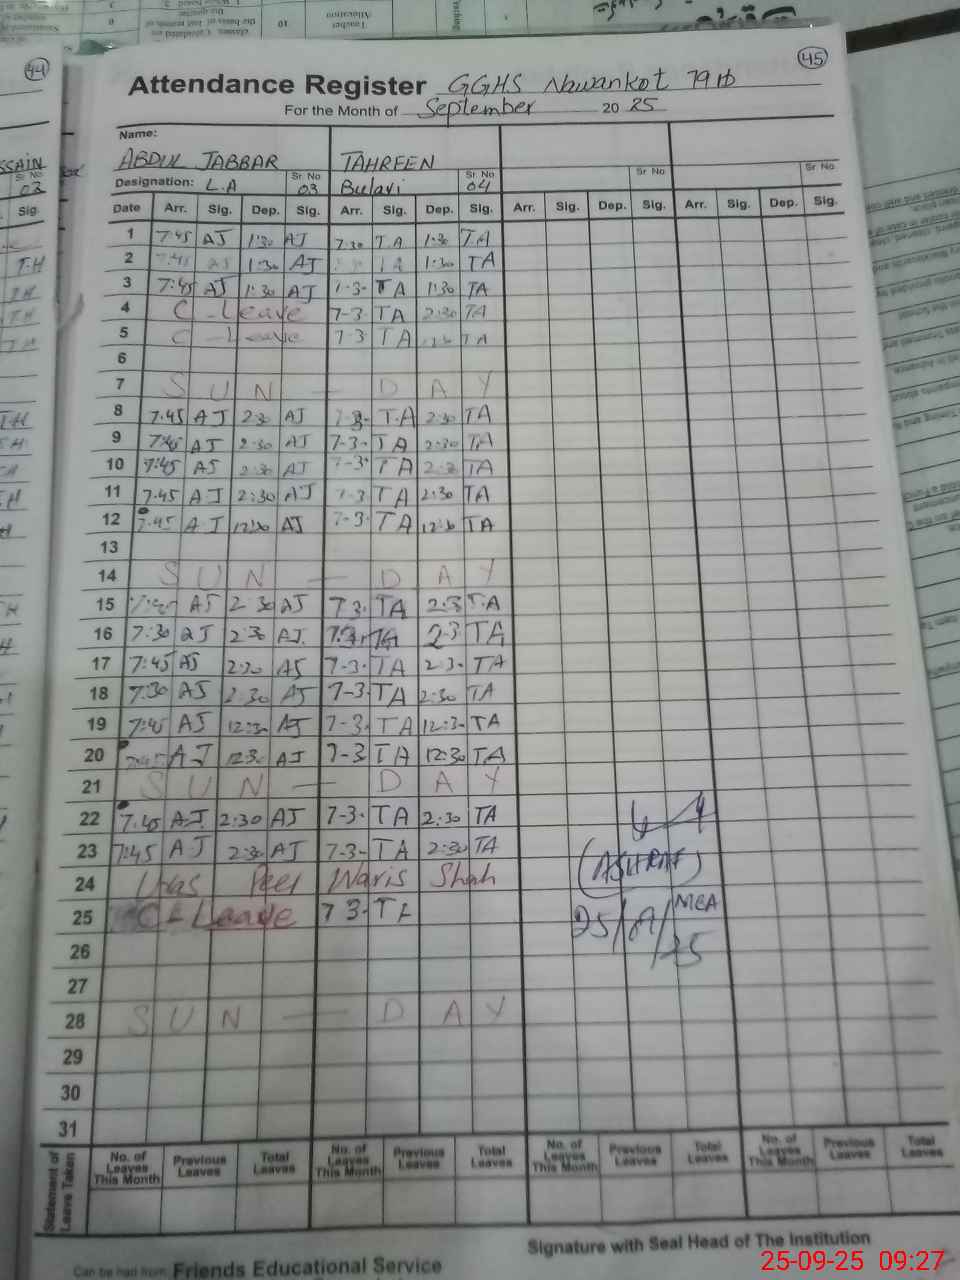 45
44
Attendance Register GGHS Nawankot 79 D
For the Month of September 2025
Name:
ABDUL JABBAR TAHREEN
Designation: L.A Sr. No 03 Sr. No 04 Sr. No Sr. No
Date Arr. Sig. Dep. Sig. Arr. Sig. Dep. Sig. Arr. Sig. Dep. Sig. Arr. Sig. Dep. Sig.
1 7:45 AJ 1:30 AJ 7:30 TA 1:30 TA
2 7:45 AJ 1:30 AJ TA 1:30 TA
3 7:45 AJ 1:30 AJ TA 1:30 TA
4 C-Leave 7-3- TA 2:30 TA
5 C-Leave 7-3 TA TA
6
7 SUN — DAY
8 7.45 AJ 2:30 AJ TA 2:30 TA
9 7:45 AJ 2:30 AJ 7-3- TA 2:30 TA
10 7:45 AJ 2:30 AJ 7-3- TA TA
11 7.45 AJ 2:30 AJ 7-3 TA 2:30 TA
12 7.45 AJ 12:30 AJ 7-3- TA 12:30 TA
13
14 SUN — DAY
15 AJ 2:30 AJ 7 3- TA 2:3 TA
16 7:30 AJ 2:30 AJ. TA 2-3 TA
17 7:45 AJ 2:30 AJ 7-3- TA 2-3- TA
18 7:30 AJ 2:30 AJ 7-3- TA 2:30 TA
19 7:45 AJ 12:30 AJ 7-3- TA 12:3- TA
20 7:45 AJ 12:30 AJ 7-3 TA 12:30 TA
21 SUN — DAY
22 7.45 AJ. 2:30 AJ 7-3- TA 2:30 TA
23 7:45 AJ 2:30 AJ 7-3- TA 2:30 TA
(ASHRAF)
24 Uras Peer Waris Shah
MEA
25 C-Leave 7 3- TA 25/9/25
26
27
28 SUN — DAY
29
30
31
Statement of Leave Taken No. of Leaves This Month Previous Leaves Total Leaves No. of Leaves This Month Previous Leaves Total Leaves No. of Leaves This Month Previous Leaves Total Leaves No. of Leaves This Month Previous Leaves Total Leaves
Signature with Seal Head of The Institution
Can be had from: Friends Educational Service
25-09-25 09:27